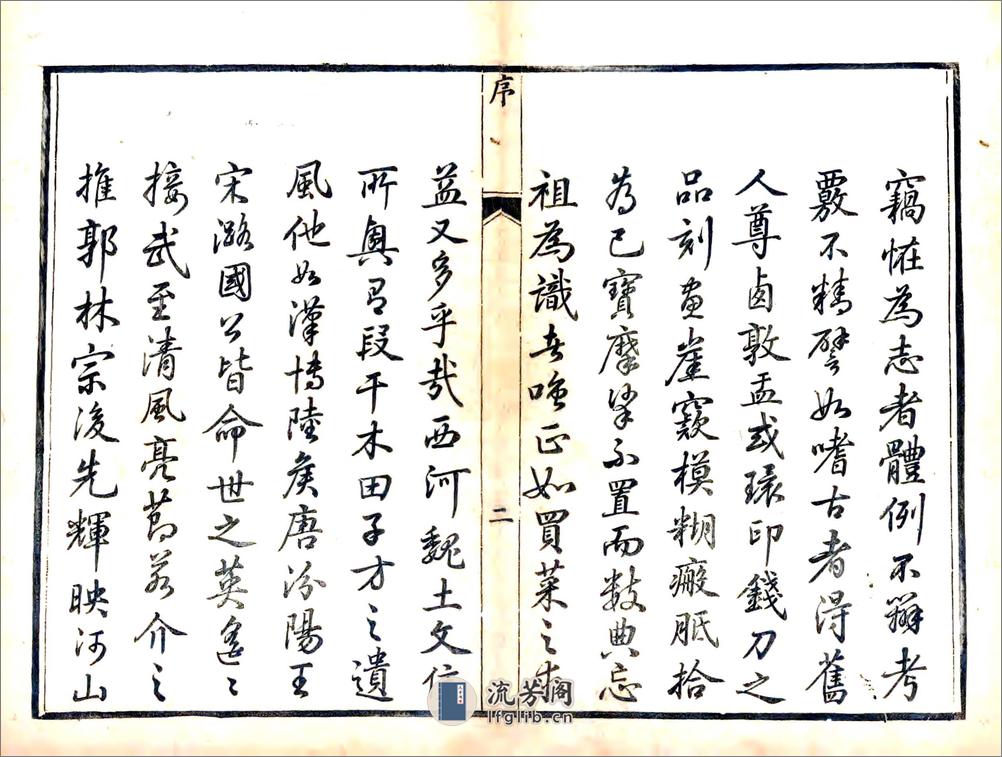 竊恠為志者體例不辨考
覈不精譬如嗜古者得舊
人尊卣敦盂或環印錢刀之
品刻畫崖竅模糊瘢胝拾
為己寶摩挲不置而數典忘
祖為識者嗤正如買菜之求
序
二
益又多乎哉西河魏土文侯
所興有段干木田子方之遺
風他如漢博陸矦唐汾陽王
宋潞國公皆命世之英遙遙
接武至清風亮節若介之
推郭林宗後先輝映河山
流芳阁
lfglib.cn